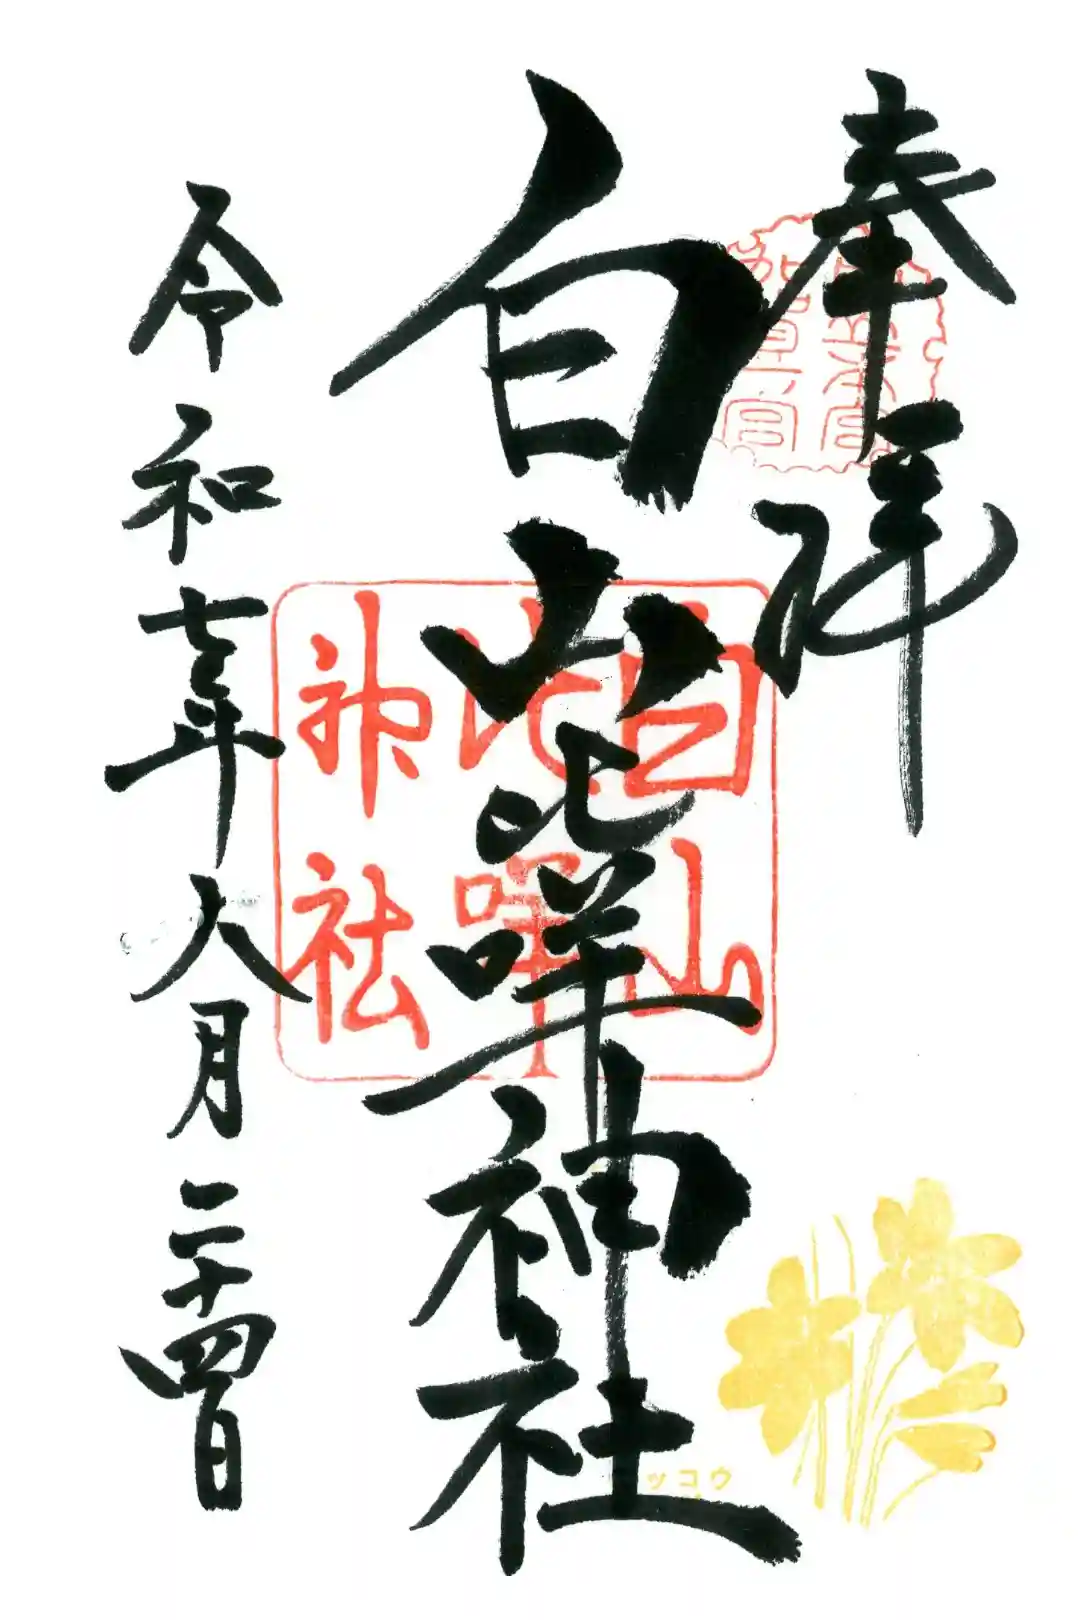 奉拝
白山比咩神社
令和七年六月二十四日
白山
比咩
神社
ッコウ